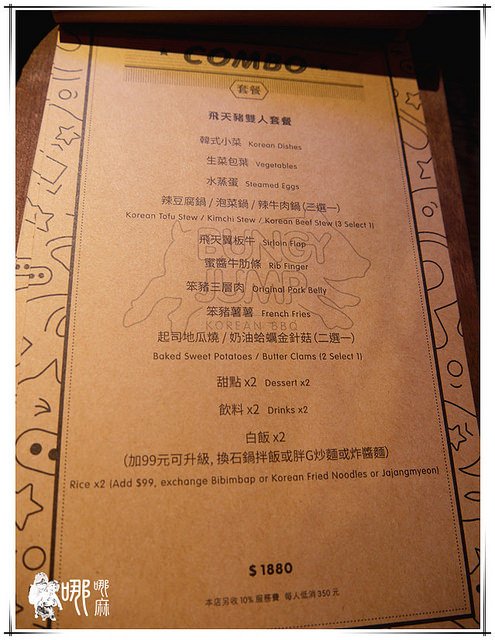 COMBO
套餐
飛天豬雙人套餐
韓式小菜 Korean Dishes
生菜包葉 Vegetables
水蒸蛋 Steamed Eggs
辣豆腐鍋 / 泡菜鍋 / 辣牛肉鍋 (三選一)
Korean Tofu Stew / Kimchi Stew / Korean Beef Stew (3 Select 1)
飛天翼板牛 Sirloin Flap
蜜醬牛肋條 Rib Finger
笨豬三層肉 Original Pork Belly
笨豬薯薯 French Fries
BUNGY
JUMP
KOREAN BBQ
起司地瓜燒 / 奶油蛤蠣金針菇 (二選一)
Baked Sweet Potatoes / Butter Clams (2 Select 1)
甜點 x2 Dessert x2
飲料 x2 Drinks x2
白飯 x2
(加99元可升級, 換石鍋拌飯或胖G炒麵或炸醬麵)
Rice x2 (Add $99, exchange Bibimbap or Korean Fried Noodles or Jajangmyeon)
$ 1880
本店另收 10% 服務費 每人低消 350 元
哪哪麻